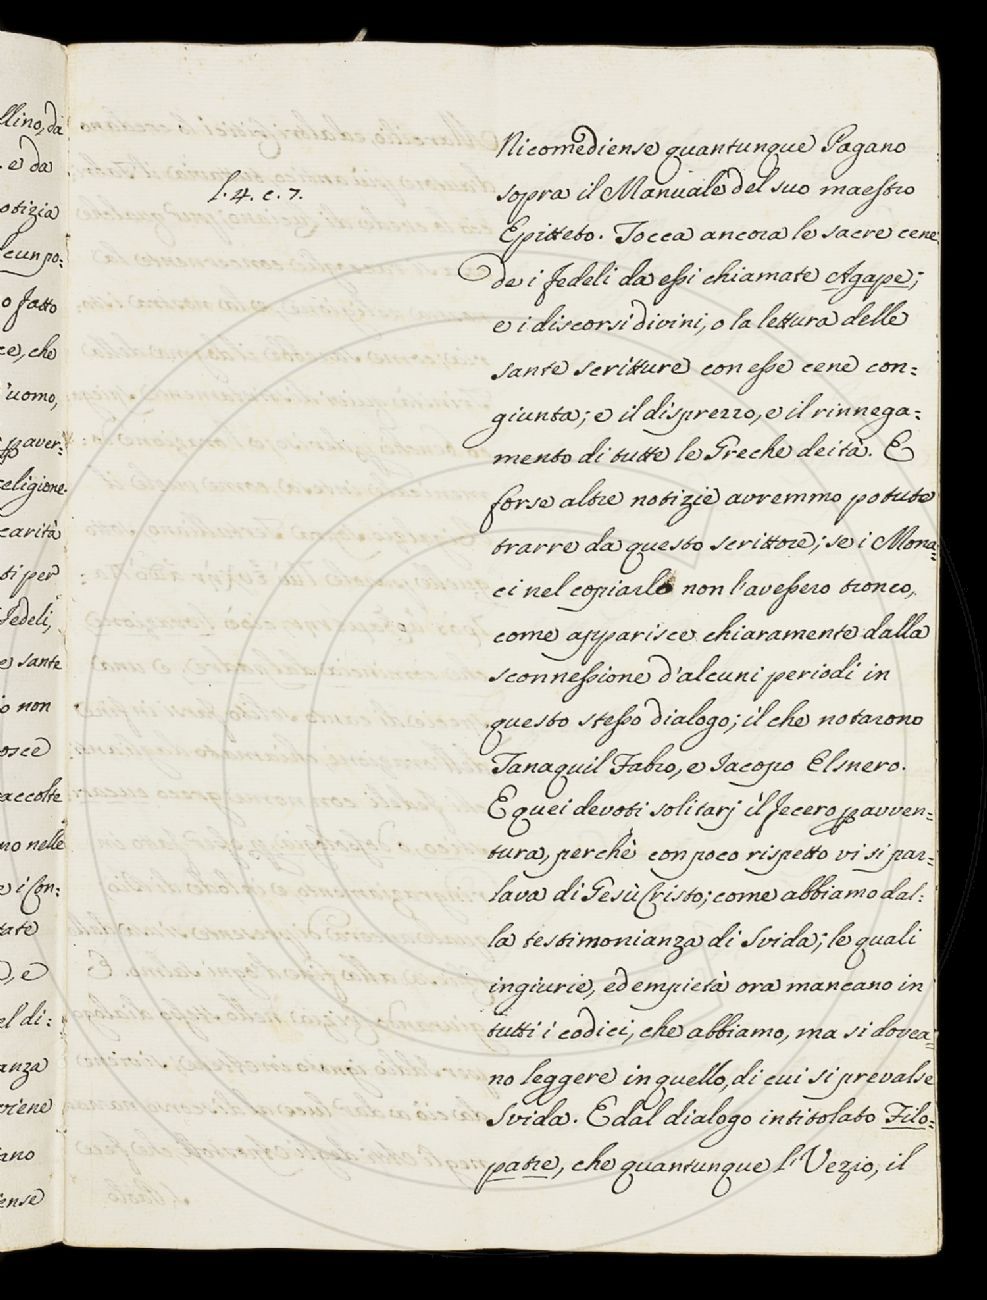 llino, da
. e da
otizia
lcun po:
o fatto
ce, che
'uomo,
paver:
religione.
carità
ti per
Fedeli,
e sante
o non
osce
accolte
no nelle
e i Con:
tate
, e
el di:
anza
viene
ano
ense
l. 4. c. 7.
Nicomediense quantunque Pagano
sopra il Manuale del suo maestro
Epitteto. Tocca ancora le sacre cene
de i fedeli da essi chiamate Agape;
e i discorsi divini, o la lettura delle
sante scritture con esse cene con:
giunta; e il disprezzo, e il rinnega:
mento di tutte le Greche deità. E
forse altre notizie avremmo potute
trarre da questo scrittore; se i Mona:
ci nel copiarlo non l'avessero tronco,
come apparisce chiaramente dalla
sconnessione d'alcuni periodi in
questo stesso dialogo; il che notarono
Tanaquil Fabro, e Iacopo Elsnero.
E quei devoti solitarj il fecero p avven:
tura, perchè con poco rispetto vi si par:
lava di Gesù Cristo; come abbiamo dal:
la testimonianza di Svida; le quali
ingiurie, ed empietà ora mancano in
tutti i codici, che abbiamo, ma si dovea:
no leggere in quello, di cui si prevalse
Svida. E dal dialogo intitolato Filo:
patre, che quantunque l'Vezio, il